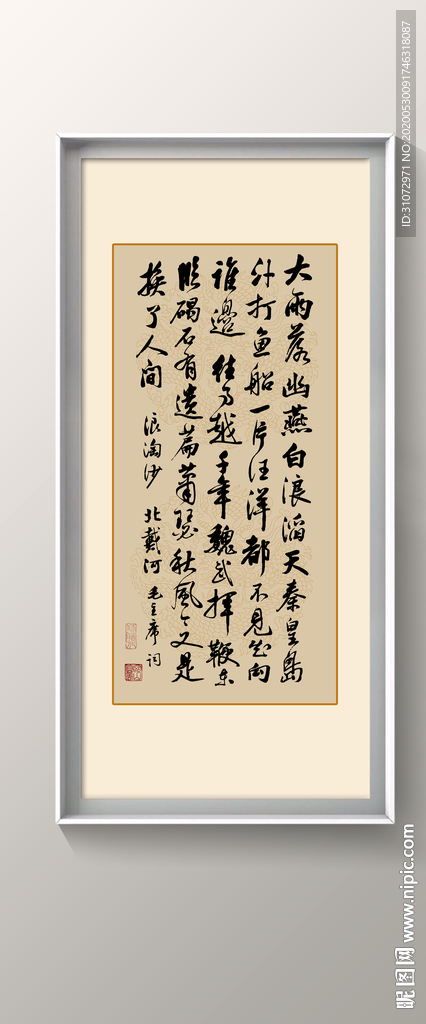 大雨落幽燕白浪滔天秦皇島
外打鱼船一片汪洋都不見知向
誰邊往事越千年魏武揮鞭东
临碣石有遗篇萧瑟秋風今又是
换了人间 浪淘沙 北戴河 毛主席词
ID:31072971 NO:20200530091746318087
昵图网 www.nipic.com